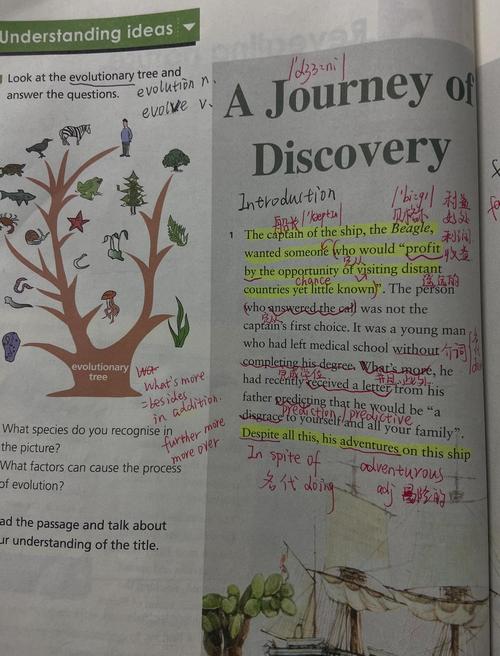 Understanding ideas
Look at the evolutionary tree and
answer the questions.
evolution n.
evolve v.
evolutionary
tree
What species do you recognise in
the picture?
What factors can cause the process
of evolution?
ad the passage and talk about
ur understanding of the title.
what's more
=besides
in addition.
further more
more over
A Journey of
Discovery
Introduction
船长
利益
好处
利润
收益
1 The captain of the ship, the Beagle,
wanted someone who would "profit
by the opportunity of visiting distant
chance
遥远的
countries yet little known". The person
who answered the call was not the
captain's first choice. It was a young man
who had left medical school without
介词
completing his degree. What's more, he
had recently received a letter from his
father predicting that he would be "a
prediction / predictive
disgrace to yourself and all your family".
Despite all this, his adventures on this ship
In spite of
名代 doing
adventurous
adj 冒险的